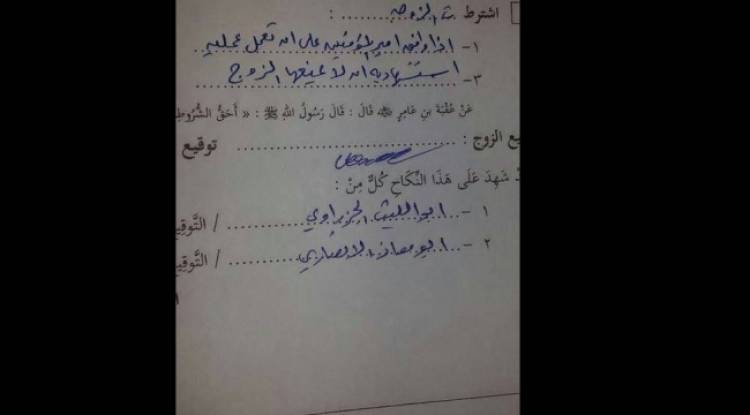 اشترطت الزوجه : ............
١- اذا وافق امير المؤمنين على ان تعمل عمليه
٣- استشهاديه ان لا يمنعها الزوج
عَنْ عُقْبَةَ بنِ عَامِرٍ ﷺ قَالَ : قَالَ رَسُولُ اللهِ ﷺ : « أَحَقُّ الشُّرُوطِ
يع الزوج : ............ توقيع
شَهِدَ عَلَى هَذَا النِّكَاحِ كُلٌّ مِنْ :
١ - ابو الليث الجزراوي ............ / التَّوقِي
٢ - ابو معاذ الانصاري ............ / التَّوقِي